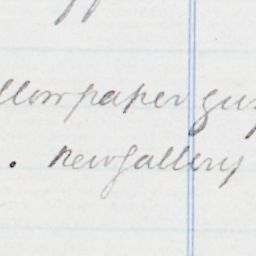 llow paper gu
. New Gallery